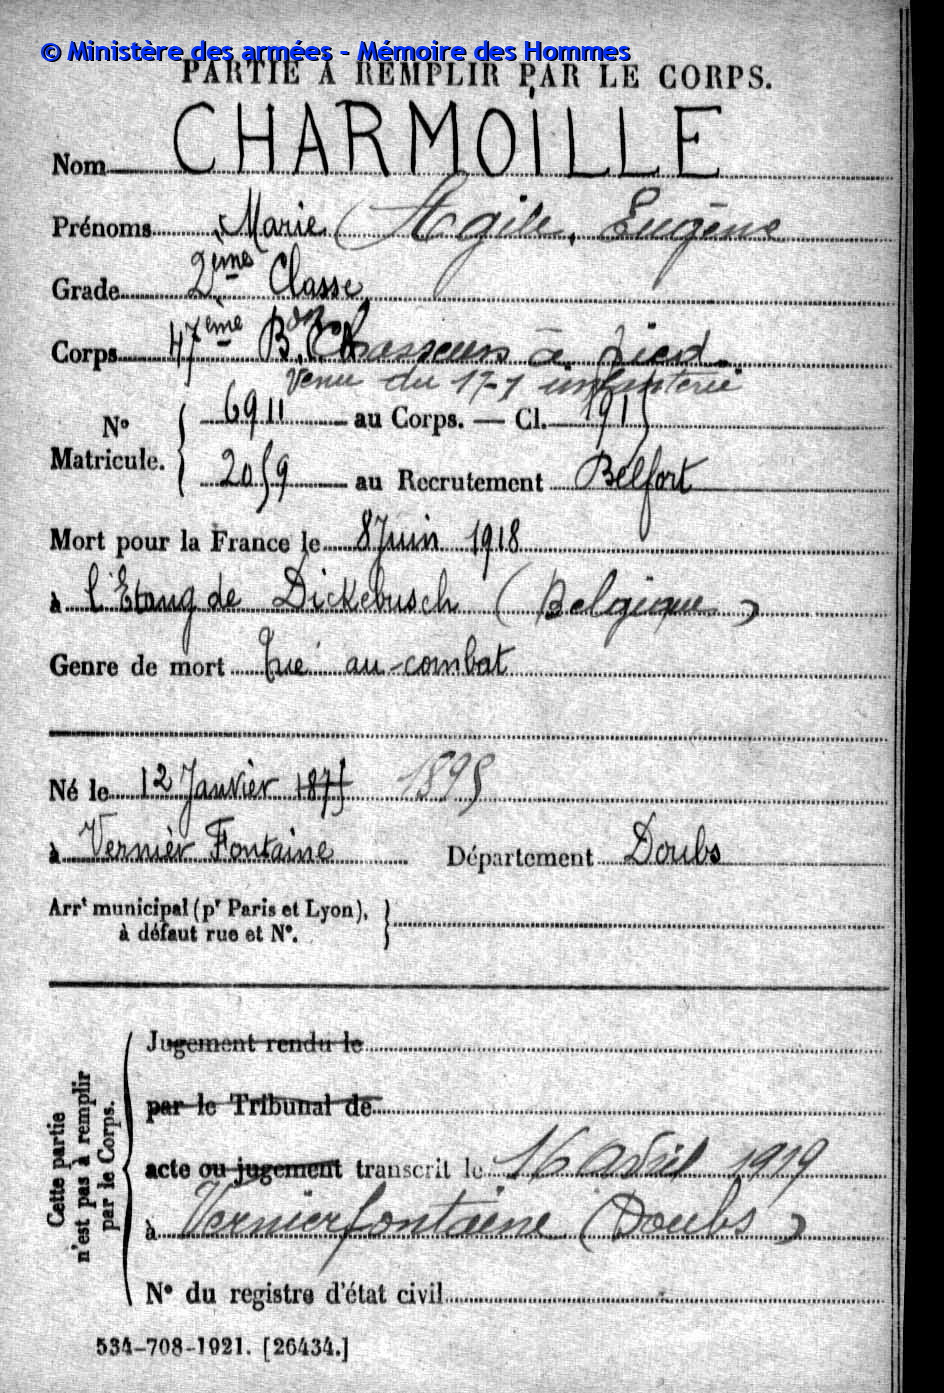 © Ministère des armées - Mémoire des Hommes
PARTIE À REMPLIR PAR LE CORPS.
Nom CHARMOILLE
Prénoms Marie Agile, Eugène
Grade 2ème Classe
Corps 47ème Bon Chasseurs à pied
Venu du 17-1 infanterie
No Matricule. 6911 au Corps. — Cl. 1915
2059 au Recrutement Belfort
Mort pour la France le 8 Juin 1918
à l'Etang de Dickebusch (Belgique)
Genre de mort Tué au combat
Né le 12 Janvier 1875 1895
à Vernier Fontaine Département Doubs
Arrt municipal (pr Paris et Lyon),
à défaut rue et No.
Cette partie
n'est pas à remplir
par le Corps.
Jugement rendu le
par le Tribunal de
acte ou jugement transcrit le 16 avril 1919
à Vernierfontaine (Doubs)
No du registre d'état civil
534-708-1921. [26434.]